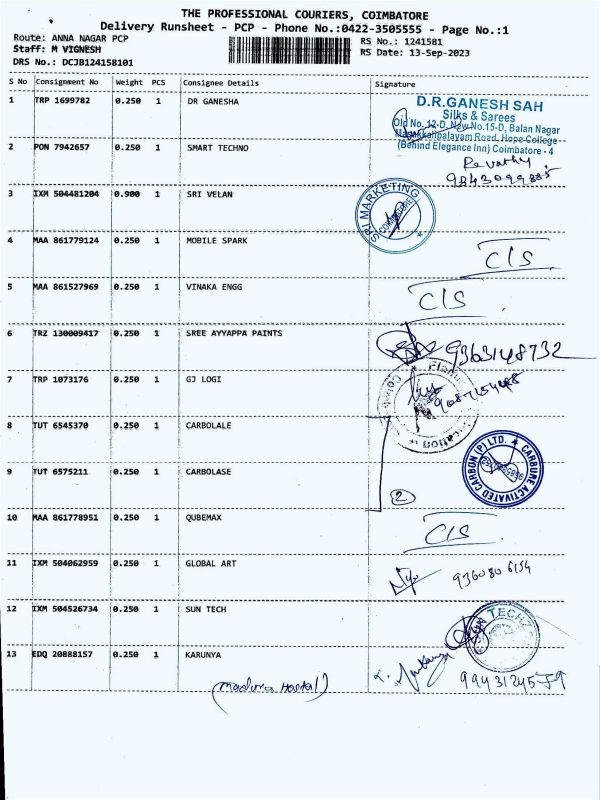 THE PROFESSIONAL COURIERS, COIMBATORE
Delivery Runsheet - PCP - Phone No.:0422-3505555 - Page No.:1
Route: ANNA NAGAR PCP RS No.: 1241581
Staff: M VIGNESH RS Date: 13-Sep-2023
DRS No.: DCJB124158101
S No Consignment No Weight PCS Consignee Details Signature
1 TRP 1699782 0.250 1 DR GANESHA
D.R.GANESH SAH
Silks & Sarees
Old No. 12-D, New No.15-D, Balan Nagar
Nagakkalipalayam Road, Hope College
(Behind Elegance Inn) Coimbatore - 4
2 PON 7942657 0.250 1 SMART TECHNO
Revathy
9843099885
3 IXM 504481204 0.900 1 SRI VELAN
SRI MARKETING
COIMBATORE
4 MAA 861779124 0.250 1 MOBILE SPARK
C/S
5 MAA 861527969 0.250 1 VINAKA ENGG
C/S
6 TRZ 130009417 0.250 1 SREE AYYAPPA PAINTS
9363148732
7 TRP 1073176 0.250 1 GJ LOGI
8 TUT 6545370 0.250 1 CARBOLALE
CARBURE ACTIVATED CARBON (P) LTD.
9 TUT 6575211 0.250 1 CARBOLASE
2
10 MAA 861778951 0.250 1 QUBEMAX
C/S
11 IXM 504062959 0.250 1 GLOBAL ART
9360806154
12 IXM 504526734 0.250 1 SUN TECH
TECH
13 EDQ 20888157 0.250 1 KARUNYA
(Madura Hostal)